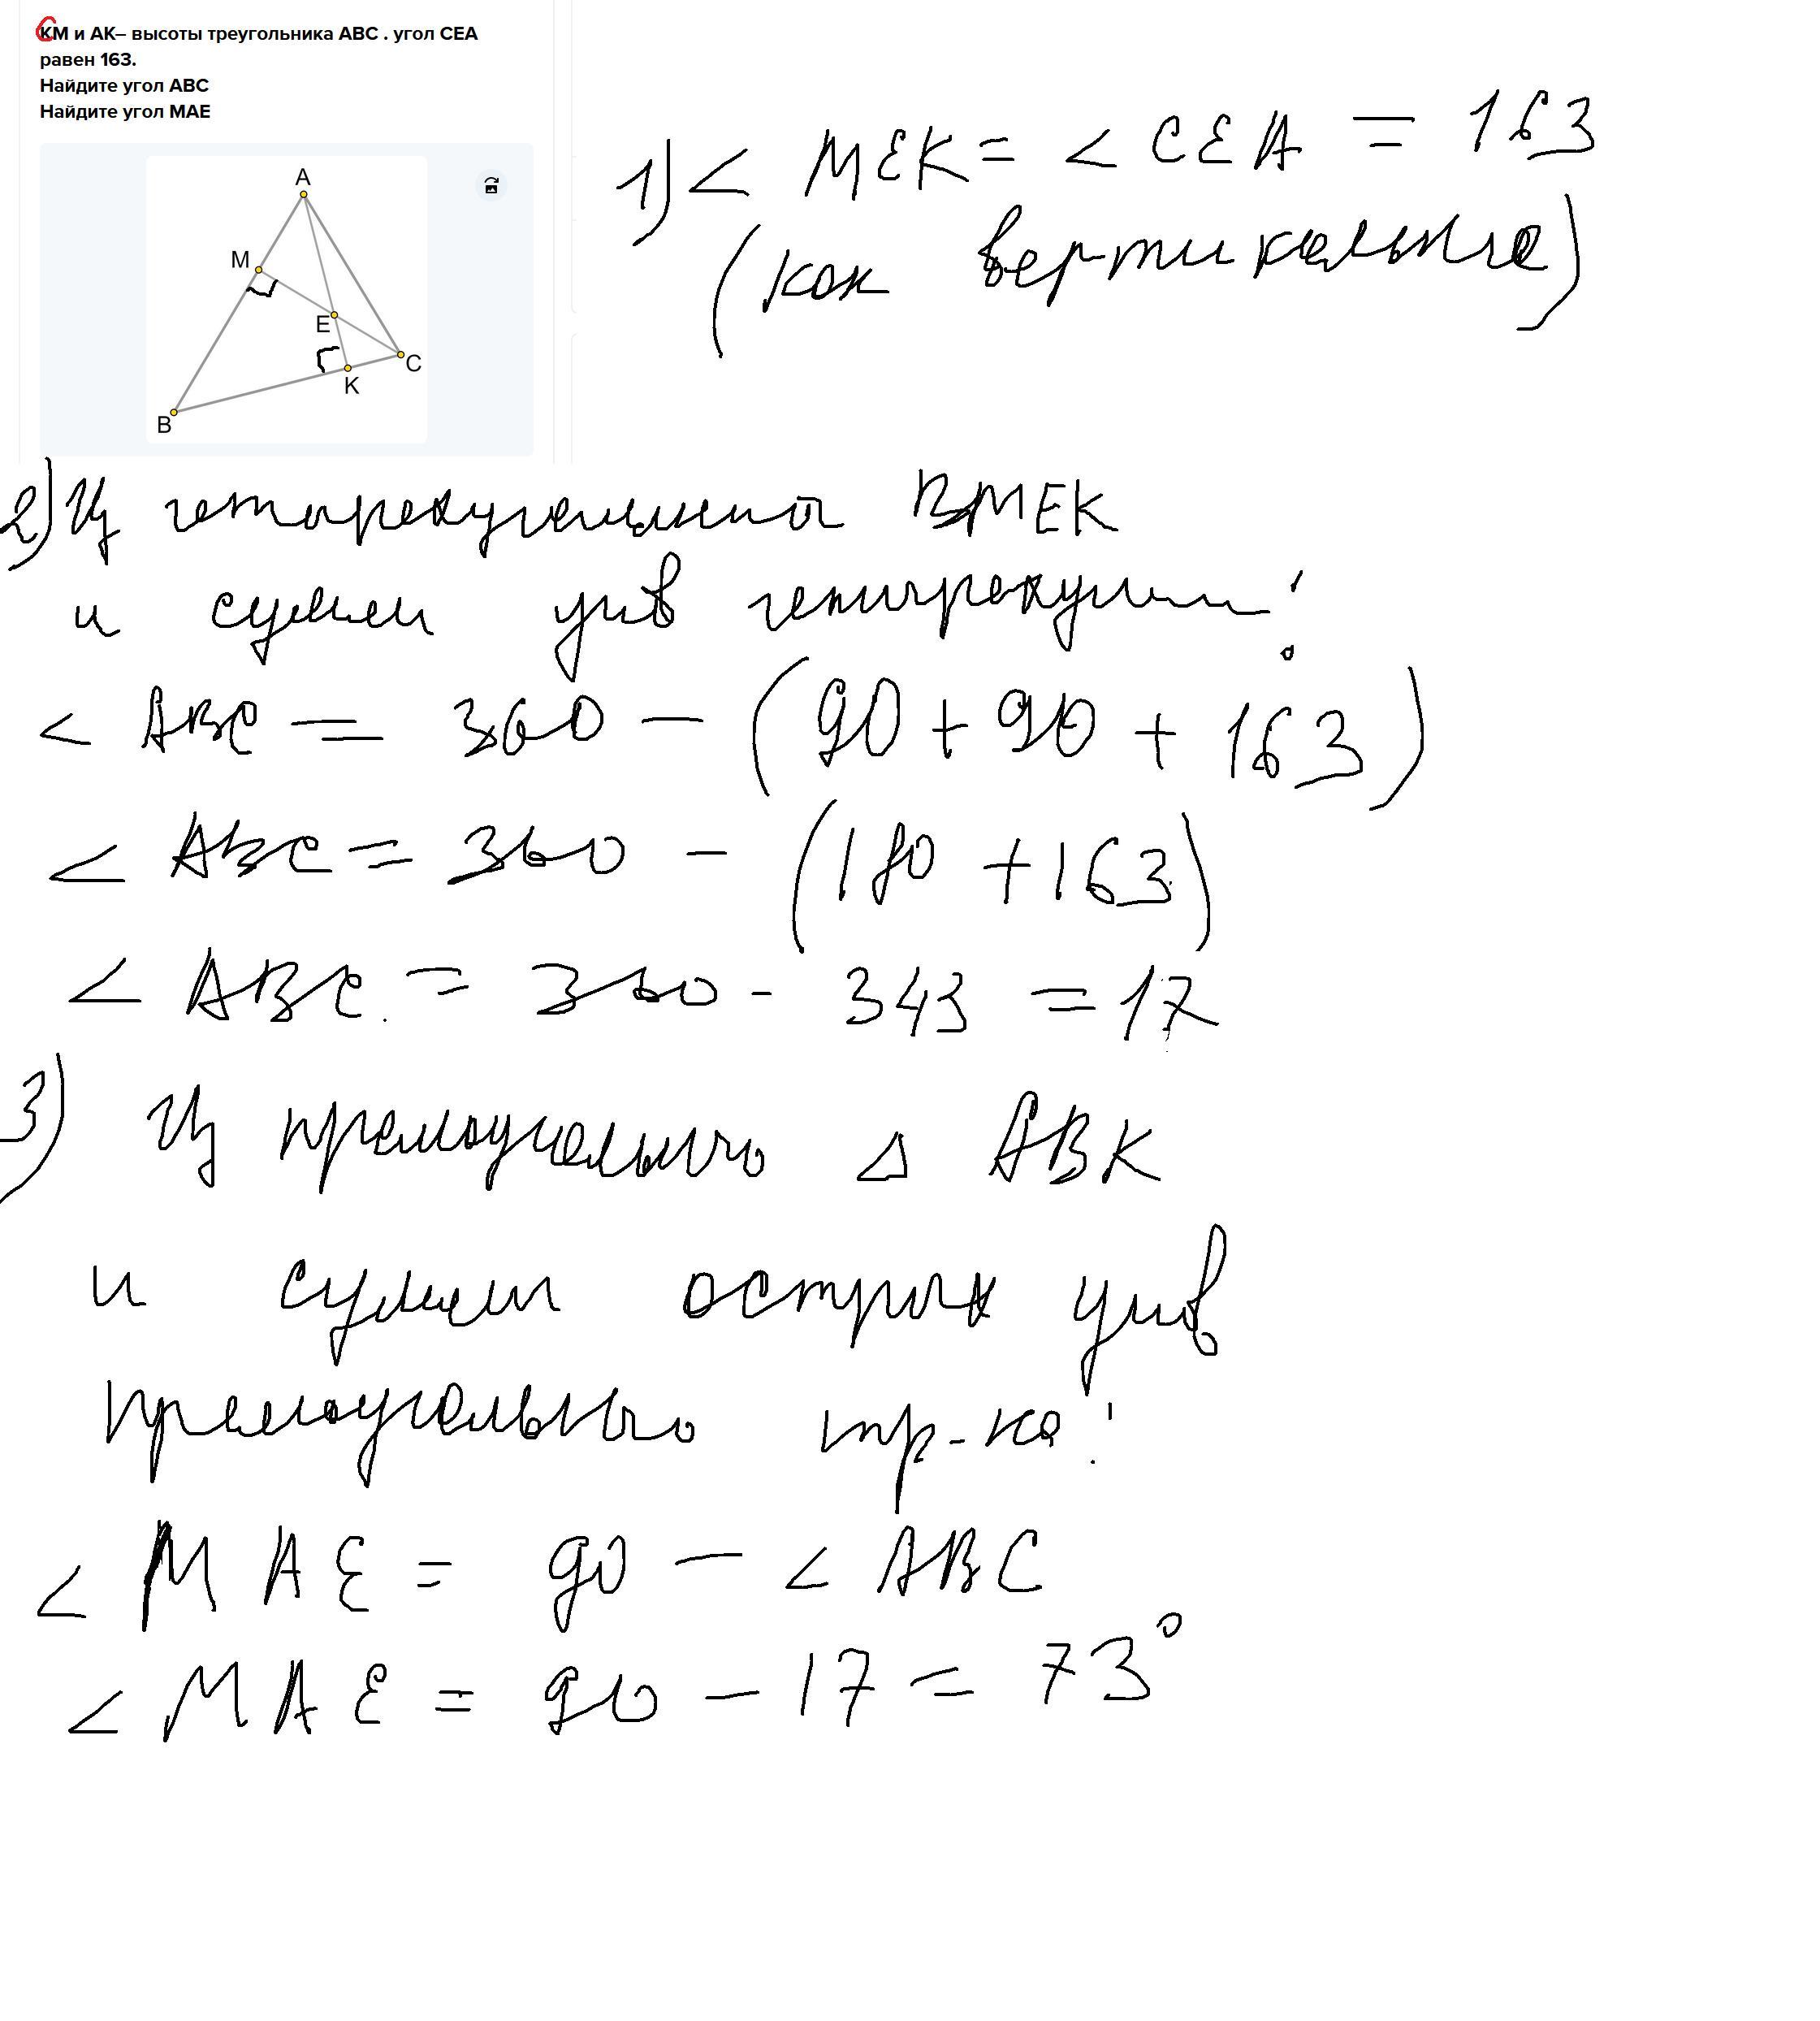 КМ и АК– высоты треугольника АВС . угол СЕА
равен 163.
Найдите угол АВС
Найдите угол МАЕ
A
M
E
C
K
B
1) < MEK = < CEA = 163
(как вертикальные)
2) Из четырехугольника BMEK
и суммы углов четырехугольн:
< ABC = 360 – (90 + 90 + 163)
< ABC = 360 – (180 + 163)
< ABC = 360 - 343 = 17
3) Из прямоугольного Δ ABK
и суммы острых углов
прямоугольного тр-ка:
< MAE = 90 – < ABC
< MAE = 90 – 17 = 73°